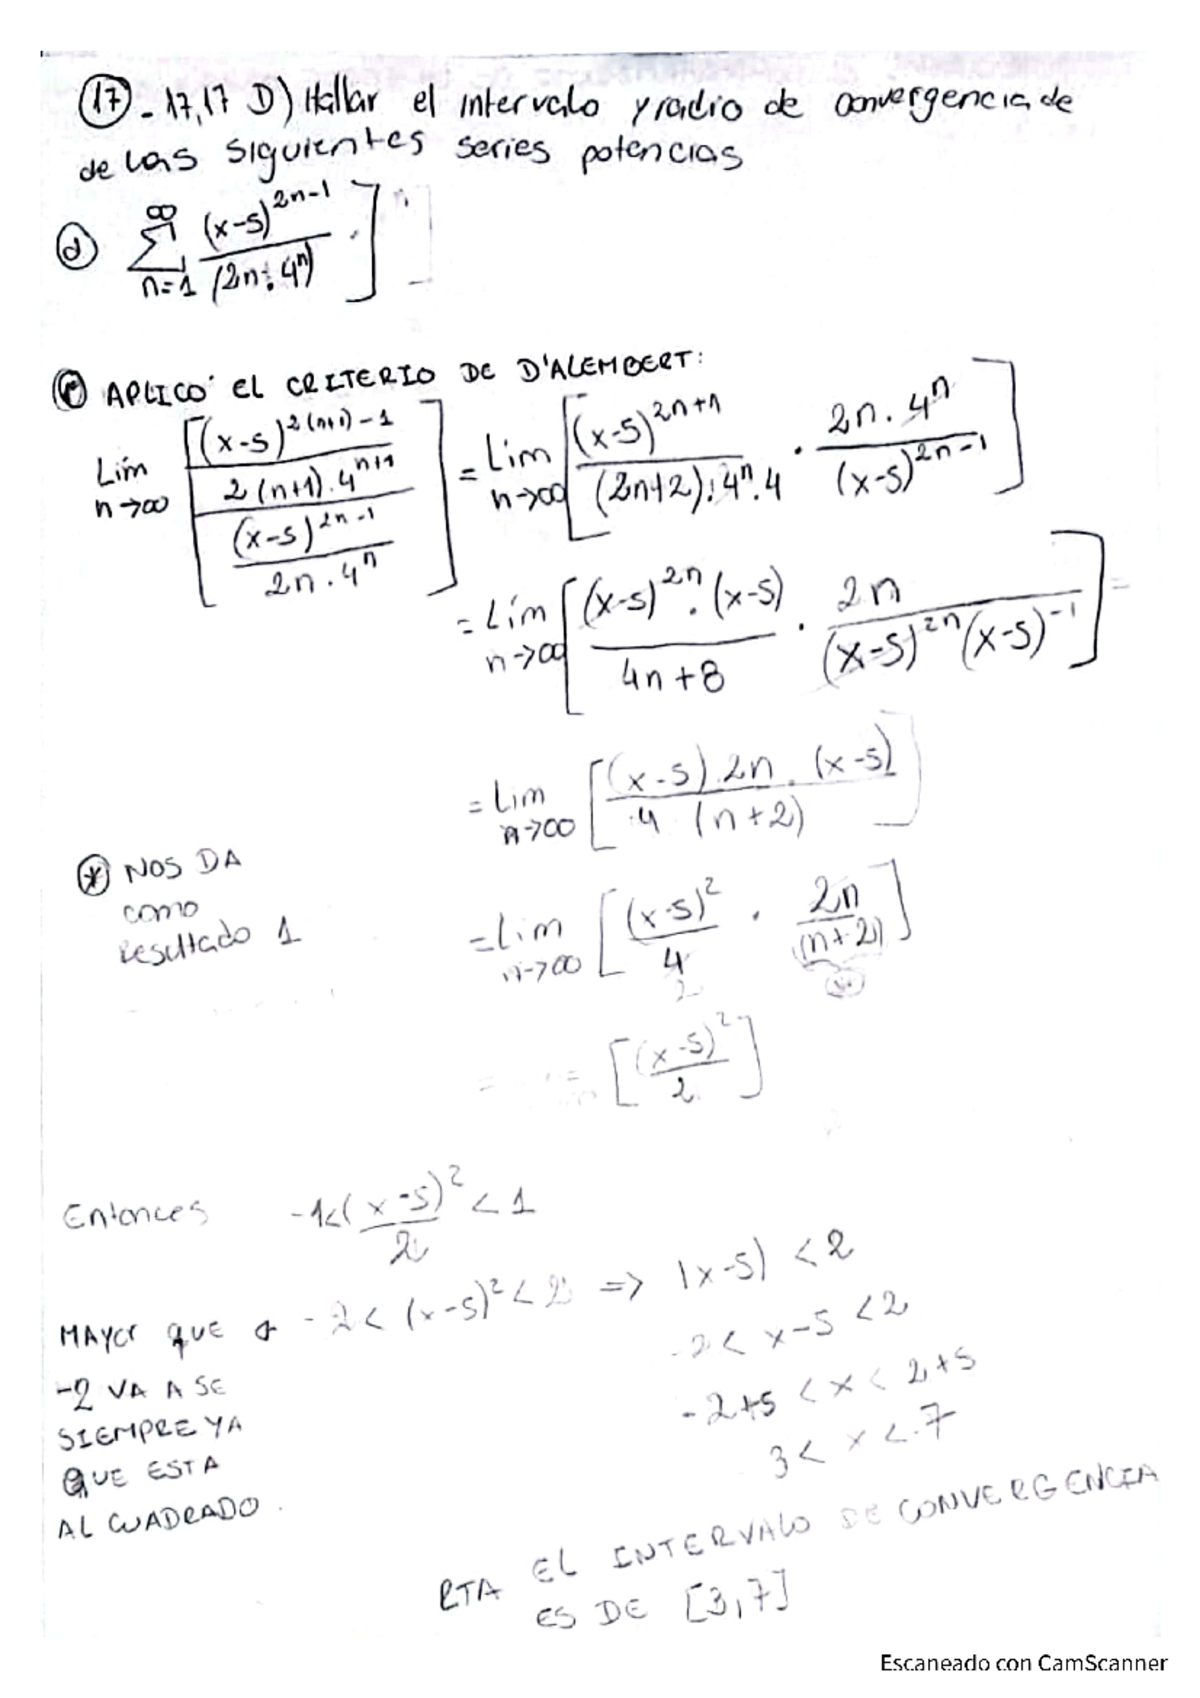 17 - 17,17 D) Hallar el intervalo y radio de convergencia de
de las siguientes series potencias
d) \sum_{n=1}^{∞} \frac{(x-5)^{2n-1}}{(2n.4^n)} ]
APLICO EL CRITERIO DE D'ALEMBERT:
Lím_{n→∞} [ \frac{\frac{(x-5)^{2(n+1)-1}}{2(n+1).4^{n+1}}}{\frac{(x-5)^{2n-1}}{2n.4^n}} ] = Lim_{n→∞} [ \frac{(x-5)^{2n+1}}{(2n+2).4^n.4} . \frac{2n.4^n}{(x-5)^{2n-1}} ]
= Lím_{n→∞} [ \frac{(x-5)^{2n}.(x-5)}{4n+8} . \frac{2n}{(x-5)^{2n}(x-5)^{-1}} ] =
= Lim_{n→∞} [ \frac{(x-5).2n.(x-5)}{4 (n+2)} ]
* NOS DA
como
resultado 1
= Lim_{n→∞} [ \frac{(x-5)^2}{4} . \frac{2n}{(n+2)} ]
2
= [ \frac{(x-5)^2}{2} ]
Entonces -1 < \frac{(x-5)^2}{2} < 1
MAYOR QUE -2 < (x-5)^2 < 2 => |x-5| < 2
-2 VA A SE
SIEMPRE YA
QUE ESTA
AL CUADRADO.
-2 < x-5 < 2
-2+5 < x < 2+5
3 < x < 7
RTA EL INTERVALO DE CONVERGENCIA
ES DE [3,7]
Escaneado con CamScanner